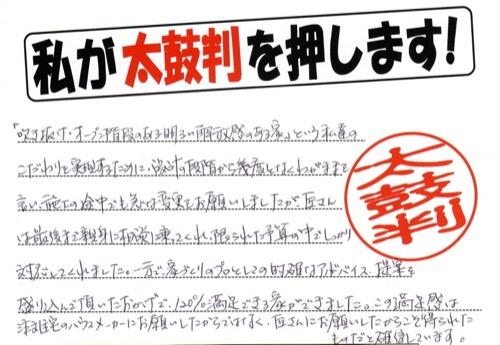 私が太鼓判を押します!
「吹き抜け・オープン階段のある明るい解放感のある家」という私達の
こだわりを実現するために、設計の段階から幾度となくわがままを
言い、施工の途中でも急な変更をお願いしましたが、匠さん
は最後まで親身に相談に乗ってくれ、限られた予算の中でしっかり
対応してくれました。一方で、家づくりのプロとしての的確なアドバイス、提案を
盛り込んで頂いたおかげで、120%満足できる家ができました。この満足感は
住宅のハウスメーカーにお願いしたからではなく、匠さんにお願いしたからこそ得られた
ものだと確信しています。
太鼓判